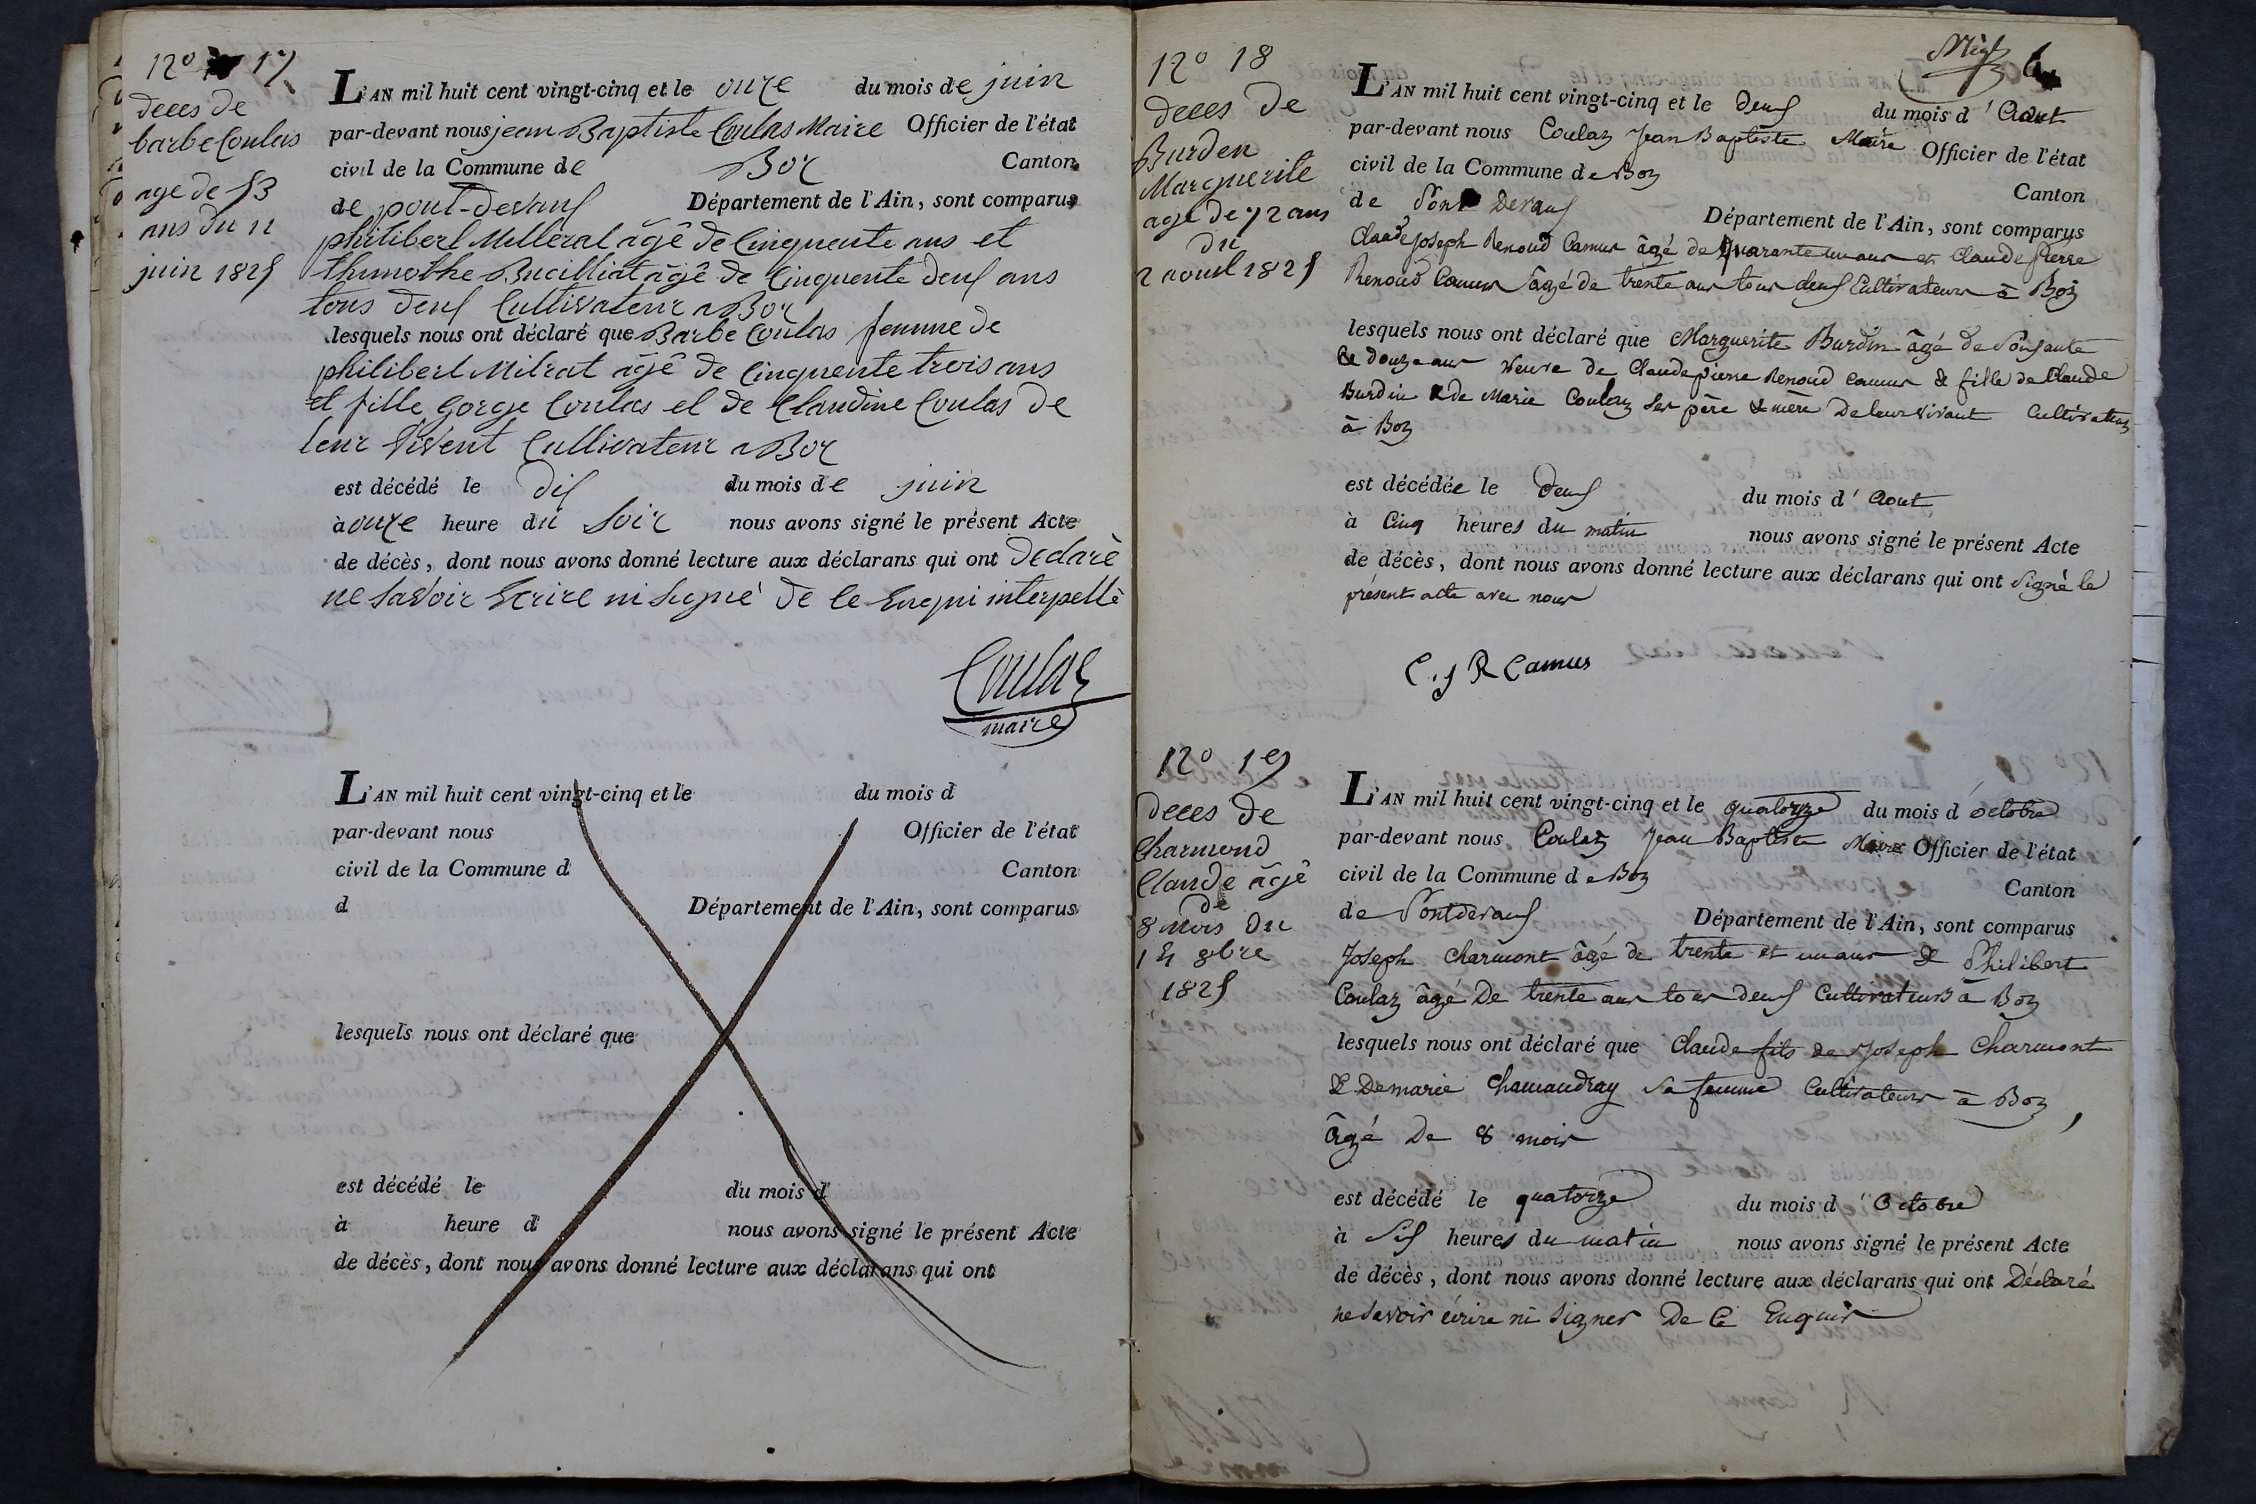 N° 17
deces de
barbe Coulas
age de 53
ans du 11
juin 1825
L'AN mil huit cent vingt-cinq et le onze du mois de juin
par-devant nous jean Baptiste Coulas Maire Officier de l'état
civil de la Commune de Boz Canton
de pont-devaux Département de l'Ain, sont comparus
philibert Milleral âgé de Cinquente ans et
thimothe Bucilliat âgé de Cinquente deux ans
tous deux Cultivateur a Boz
lesquels nous ont déclaré que Barbe Coulas femme de
philibert Milrat âgé de Cinquente trois ans
et fille gorge Coulas et de Claudine Coulas de
leur vivent Cultivateur a Boz
est décédé le dix du mois de juin
à onze heure du soir nous avons signé le présent Acte
de décès, dont nous avons donné lecture aux déclarans qui ont declaré
ne savoir Ecrire ni signé de ce Enqui interpellé
Coulas
maire
L'AN mil huit cent vingt-cinq et le du mois d
par-devant nous Officier de l'état
civil de la Commune d Canton
d Département de l'Ain, sont comparus
lesquels nous ont déclaré que
est décédé le du mois d
à heure d nous avons signé le présent Acte
de décès, dont nous avons donné lecture aux déclarans qui ont
6
N° 18
deces de
Burden
Marguerite
age de 72 ans
du
2 aoust 1825
L'AN mil huit cent vingt-cinq et le deux du mois d'Aout
par-devant nous Coulaz Jean Baptiste Maire Officier de l'état
civil de la Commune de Boz Canton
de Pont Devaux Département de l'Ain, sont comparus
Claude joseph Renoud Camus âgé de quarante un ans et Claude pierre
Renoud Camus âgé de trente ans tous deux Cultivateurs à Boz
lesquels nous ont déclaré que Marguerite Burdin âgé de Soixante
& douze ans veuve de Claude pierre Renoud Camus & fille de Claude
Burdin & de Marie Coulaz ses père & mère De leur vivant Cultivateurs
à Boz
est décédée le deux du mois d'Aout
à Cinq heures du matin nous avons signé le présent Acte
de décès, dont nous avons donné lecture aux déclarans qui ont Signé le
présent acte avec nous
C. j R Camus
N° 19
deces de
Charmond
Claude âgé
de
8 mois du
14 8bre
1825
L'AN mil huit cent vingt-cinq et le quatorze du mois d'octobre
par-devant nous Coulaz Jean Baptiste Maire Officier de l'état
civil de la Commune de Boz Canton
de Pontdevaux Département de l'Ain, sont comparus
Joseph Charmont âgé de trente et un ans & Philibert
Coulaz âgé De trente ans tous deux Cultivateurs à Boz
lesquels nous ont déclaré que Claude fils de Joseph Charmont
& De marie Chamandray sa femme Cultivateurs à Boz,
âgé De 8 mois
est décédé le quatorze du mois d'Octobre
à Six heures du matin nous avons signé le présent Acte
de décès, dont nous avons donné lecture aux déclarans qui ont Déclaré
ne savoir écrire ni signer De Ce Enquis